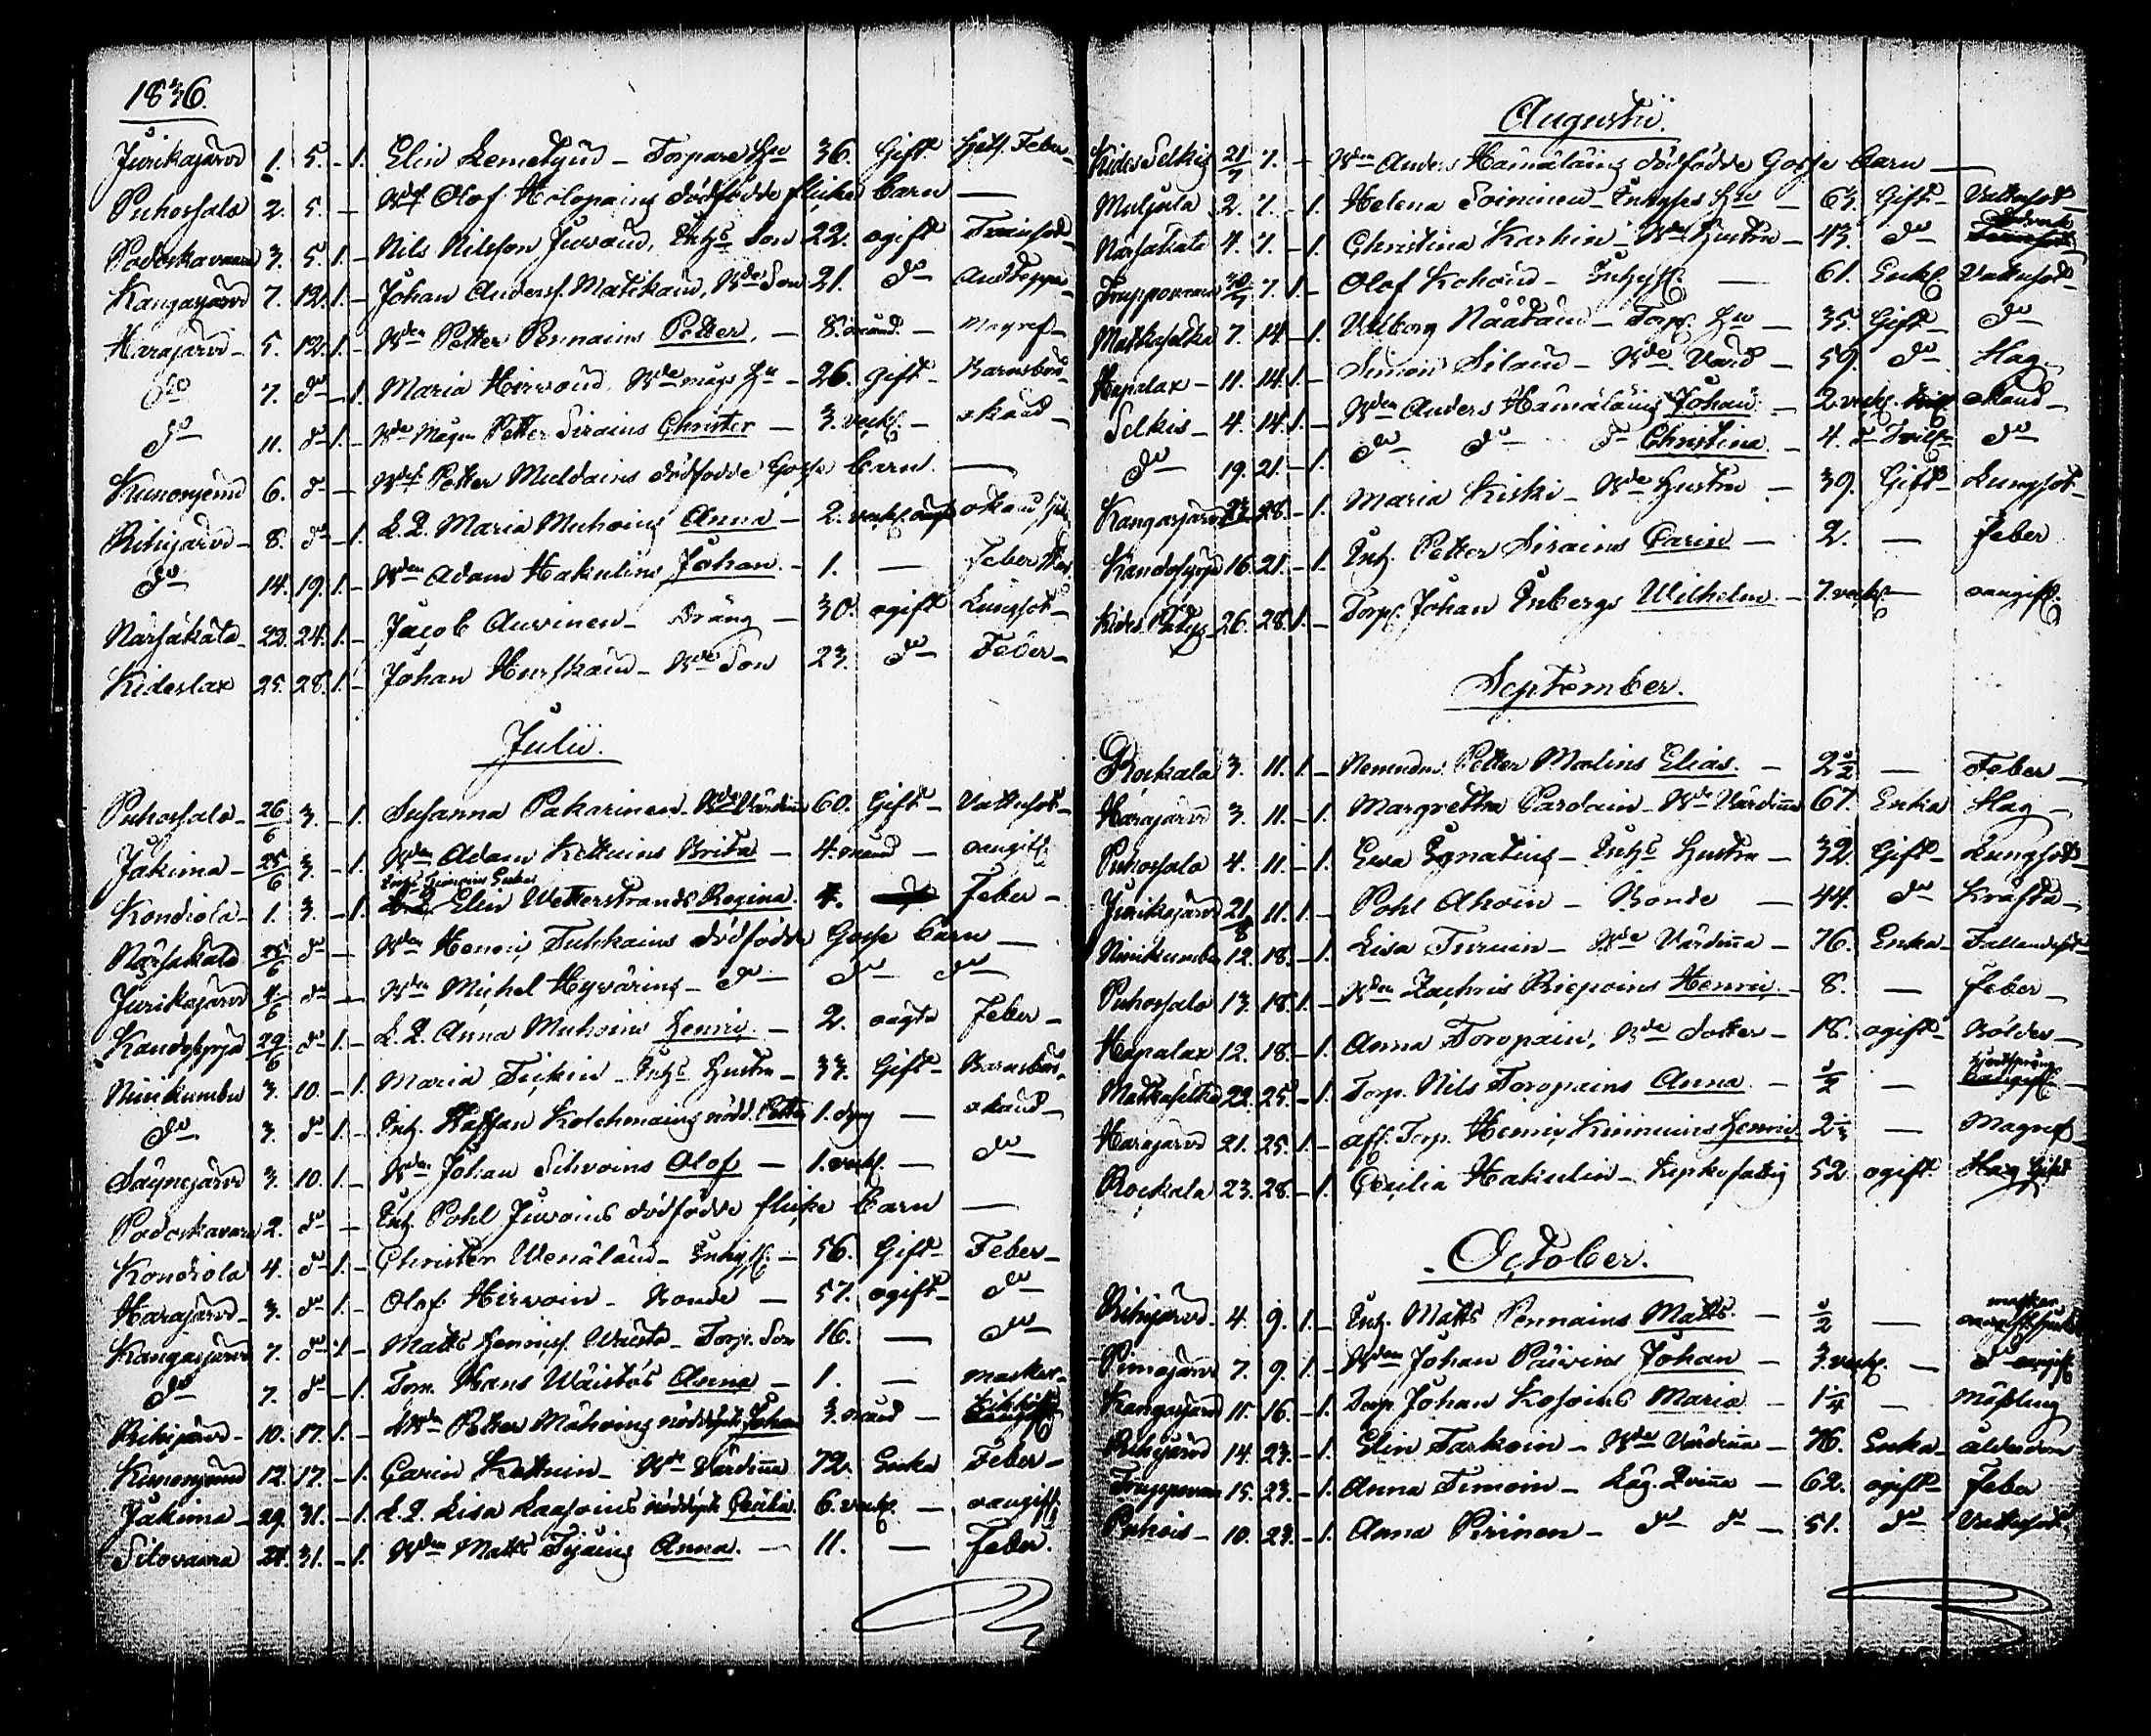 1836.
Jurikajärvi 1. 5. – 1. Elin Lemetyin – Torpare Hu 36. Gift. Feber
Puhossalo 2. 5. – Olof Holopains dödfödde flicke barn —
Podoskavaara 3. 5. 1. – Nils Nilsson Juvain, Inhs Son 22. ogift
Kangasjärvi 7. 12. 1. – Johan Anders. Matikain, Bde Son 21. do andtäppa
Harajärvi – 5. 12. 1. – Bden Petter Pennains Petter. – 8. månad. – Magref –
do 7. do – 1. Maria Hirvoin, Bde mågs Hu – 26. gift – Barnsbörd –
do 11. do 1. – Bde Mågen Petter Sirains Christer – 3. veckor – okänd –
Kunonjemi 6. do – Petter Muldains dödfödde Gosse barn. —
Rihijärvi – 8. do – 1. L. Q. Maria Muhoins Anna – 2. okänd
do 14. 19. 1. – Bden Adam Hakulins Johan. – 1. — Feber
Närsäkälä – 22. 24. 1. – Jacob Auvinen – Dräng – 30. ogift Lungsot –
Kideslax 25. 28. 1. – Johan Hurskain – Bde Son 23. do Feber –
Julii.
Puhossalo – 26/6 3. – 1. Susanna Pakarinen – Bde Värdinna 60. Gift – Vattusot –
Jäkima – 25/6 3. – 1. Bden Adam Kettuins Brita – 4. månad — oangift
Kondiola – 1. 3. – 1. Elin Wetterstrands Regina. 4. Feber –
Närsäkälä 25/6 do – Bden Henric Tuhkains dödfödde Gosse barn —
Jurikajärvi 4/6 do – Bden Michel Hyvärins – do – do do
Kandosyrjä 29/6 do 1. – L. Q. Anna Muhoins Henric. – 2. oägta Feber –
Niinikumbu 3. 10. – 1. Maria Tiikin – Inhs Hustru – 33. Gift – Barnsbörd –
do 3. do 1. – Inh. Staffan Kolehmains nödd. Petter 1. dygn — okänd –
Säynejärvi 3. 10. 1. – Bden Johan Sihvoins Olof — 1. veck. — do
Podoskavaara 2. do – Inh. Pohl Juvoins dödfödde flicke barn —
Kondiola 4. do 1. – Christer Wenäläin – Inhyss. – 56. Gift – Feber –
Harajärvi – 3. do 1. – Olof Hirvoin – Bonde — 57. ogift – do
Kangasjärvi 7. do 1 – Matts Henrics. Wäistö – Torp. Son 16. — do
do 7. do – 1. Torp. Hans Wäistös Anna — 1. — maskar –
Rihijärvi – 10. 17. 1. – Bden Petter Mähöins nöddöpt Johan 3. månad – Kikhosta
Kunonjemi 12. 17. – 1. Carin Kettuin – Bde Värdinna 72. Enka Feber –
Jäkima – 29. 31. – 1. L. Q. Lisa Laasoins nöddöpt Cecilia. 6. veck. – oangift
Silovaara 28. 31. – 1. Bden Matts Tyäins Anna. — 11. — Feber.
Augustii.
Kides Selkis 21/7 7. – Bden Anders Hämäläins dödfödde Gosse barn —
Muljula 2. 7. – 1. Helena Soininen – Inhyses Hu – 63. Gift – Vattusot –
Närsäkälä 4. 7. – 1. Christina Karhin – Bde Hustru – 43. do
30/7 7. 1. – Olof Kohoin – Inhyss. — 61. Enkl. Vattusot –
Matkaselkä 7. 14. – 1. Valborg Näätäin – Torp. Hu – 35. Gift – do
Hapalax – 11. 14. 1. – Simon Silain – Bde Värd – 59. do Hag –
Selkis – 4. 14. 1. – Bden Anders Hämäläins Johan. – 2 veck. okänd –
do 19. 21. – 1. do do do Christina. – 4. do do
Kangasjärvi 23. 28. – 1. Maria Kiski – Bde Hustru – 39. Gift – Lungsot –
Kandosyrjä 16. 21. – 1. Inh. Petter Sirains Carin – 2. — feber
Kides 26. 28. 1. – Torp. Johan Enbergs Wilhelm – 7. veck — oangift.
September.
Rockala 3. 11. 1. – Petter Malins Elias. – 2 1/2 — Feber –
Harajärvi 3. 11. – 1. Margretha Pardain – Bde Värdinna 67. Enka Hag –
Puhossalo 4. 11. – 1. Ewa Ignatius – Inhs Hustru – 32. Gift – Lungsot –
Jurikajärvi 21/8 11. 1. – Pohl Ahoin – Bonde — 44. do Kräfta –
Niinikumbu 12. 18. – 1. Lisa Turuin – Bde Värdinna – 76. Enka – Fallandesot –
Puhossalo 13. 18. 1. – Bden Zachris Riepoins Henric. – 8. — feber –
Hapalax 12. 18. – 1. Anna Toropain, Bde Dotter – 18. ogift – Bölder –
Matkaselkä 22. 25. – 1. Torp. Nils Toropains Anna – 1/2 —
Harajärvi 21. 25. 1. – Torp. Henric Kinnuins Henric 2 — Magref –
Rockala 23. 28. – 1. Cecilia Hakulin – kyrkofattig 52. ogift Hag
October.
Rihijärvi – 4. 9. 1. – Inh. Matts Pennains Matts. – 1/2 — maskar
Piimäjärvi 7. 9. 1. – Bden Johan Päivins Johan – 3. veck. — oangift
Kangasjärvi 11. 16. – 1. Torp. Johan Kosoins Maria – 1 1/4 – Mässling
Rihijärvi 14. 23. – 1. Elin Tarkoin – Bde Värdinna – 76. Enka – ålderdom
15. 23. – 1. Anna Timoin – Läg. Qvinna — 62. ogift – feber
Puhois – 10. 23. – 1. Anna Pirinen – do do – 51. do Vattusot